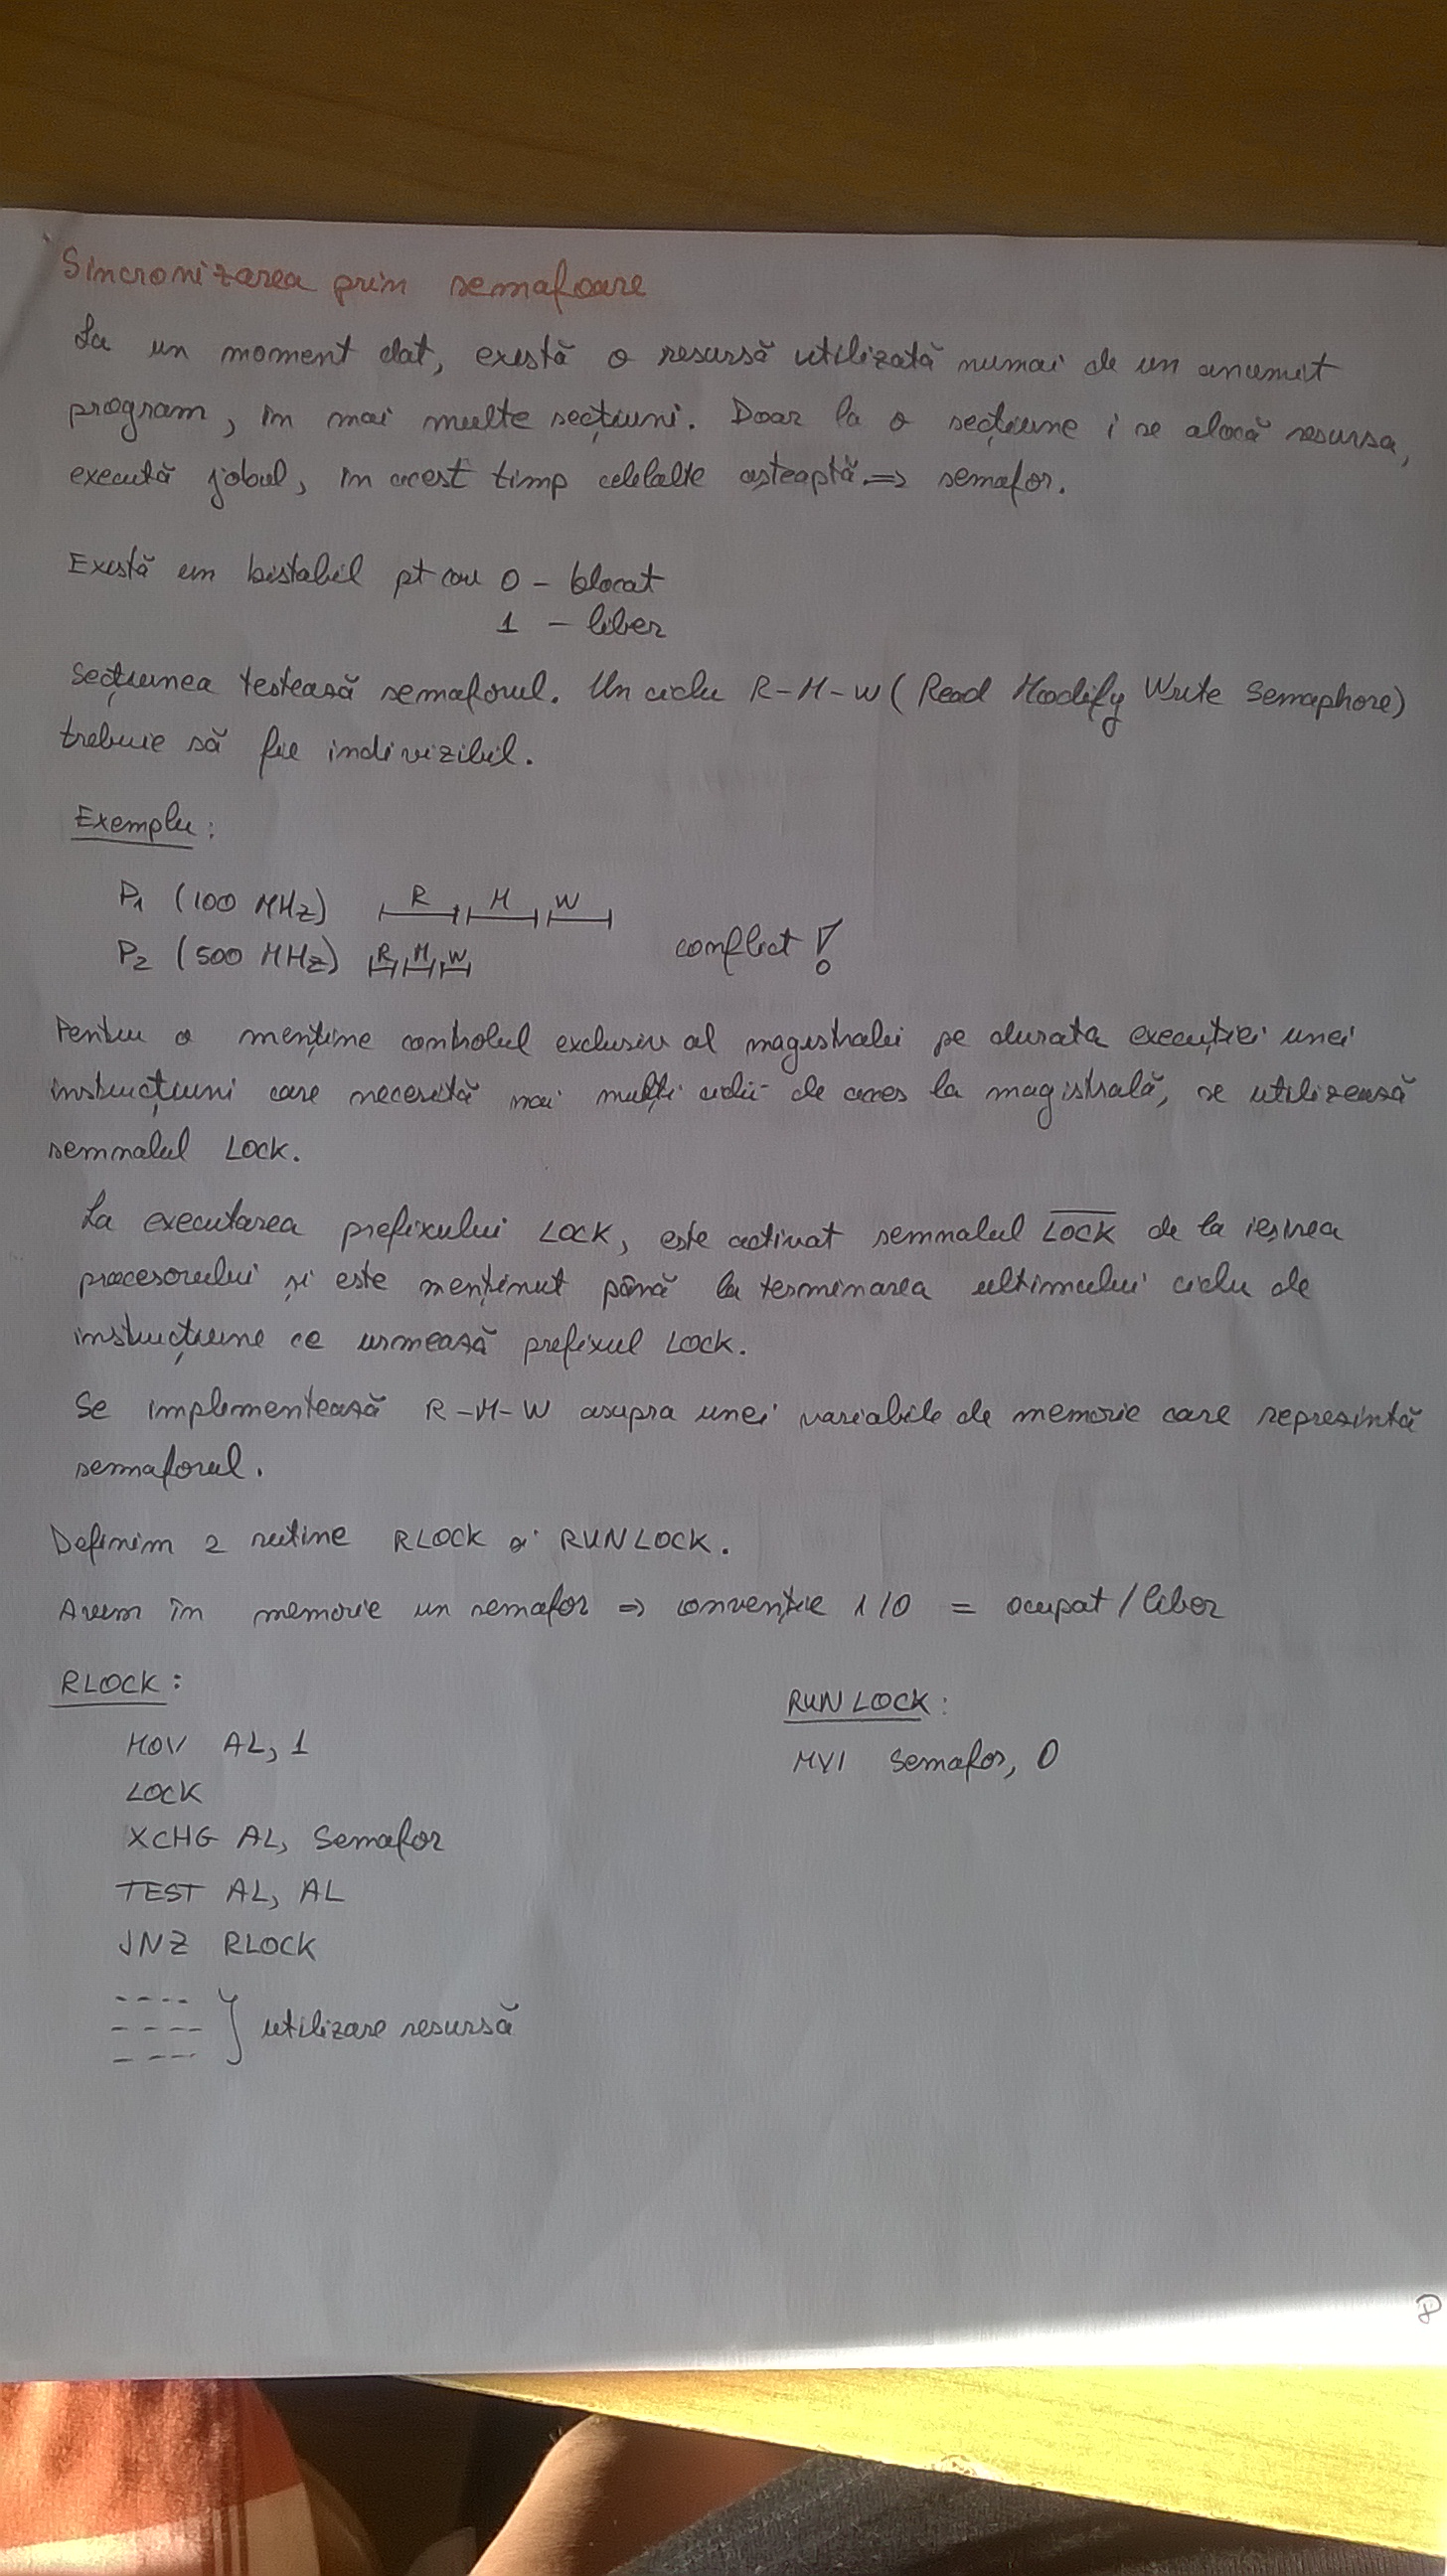 Sincronizarea prin semafoare
La un moment dat, există o resursă utilizată numai de un anumit
program, în mai multe secțiuni. Doar la o secțiune i se alocă resursa,
execută jobul, în acest timp celelalte așteaptă. => semafor.
Există un bistabil pt care 0 - blocat
1 - liber
Secțiunea testează semaforul. Un ciclu R-M-W (Read Modify Write Semaphore)
trebuie să fie indivizibil.
Exemplu:
P1 (100 MHz) R M W
P2 (500 MHz) R M W conflict !
Pentru a menține controlul exclusiv al magistralei pe durata execuției unei
instrucțiuni care necesită mai mulți cicli de acces la magistrală, se utilizează
semnalul LOCK.
La executarea prefixului LOCK, este activat semnalul LOCK de la ieșirea
procesorului și este menținut până la terminarea ultimului ciclu de
instrucțiune ce urmează prefixul LOCK.
Se implementează R-M-W asupra unei variabile de memorie care reprezintă
semaforul.
Definim 2 rutine RLOCK și RUNLOCK.
Avem în memorie un semafor => convenție 1/0 = ocupat / liber
RLOCK:
MOV AL, 1
LOCK
XCHG AL, Semafor
TEST AL, AL
JNZ RLOCK
---- 
---- } utilizare resursă
----
RUNLOCK:
MVI Semafor, 0